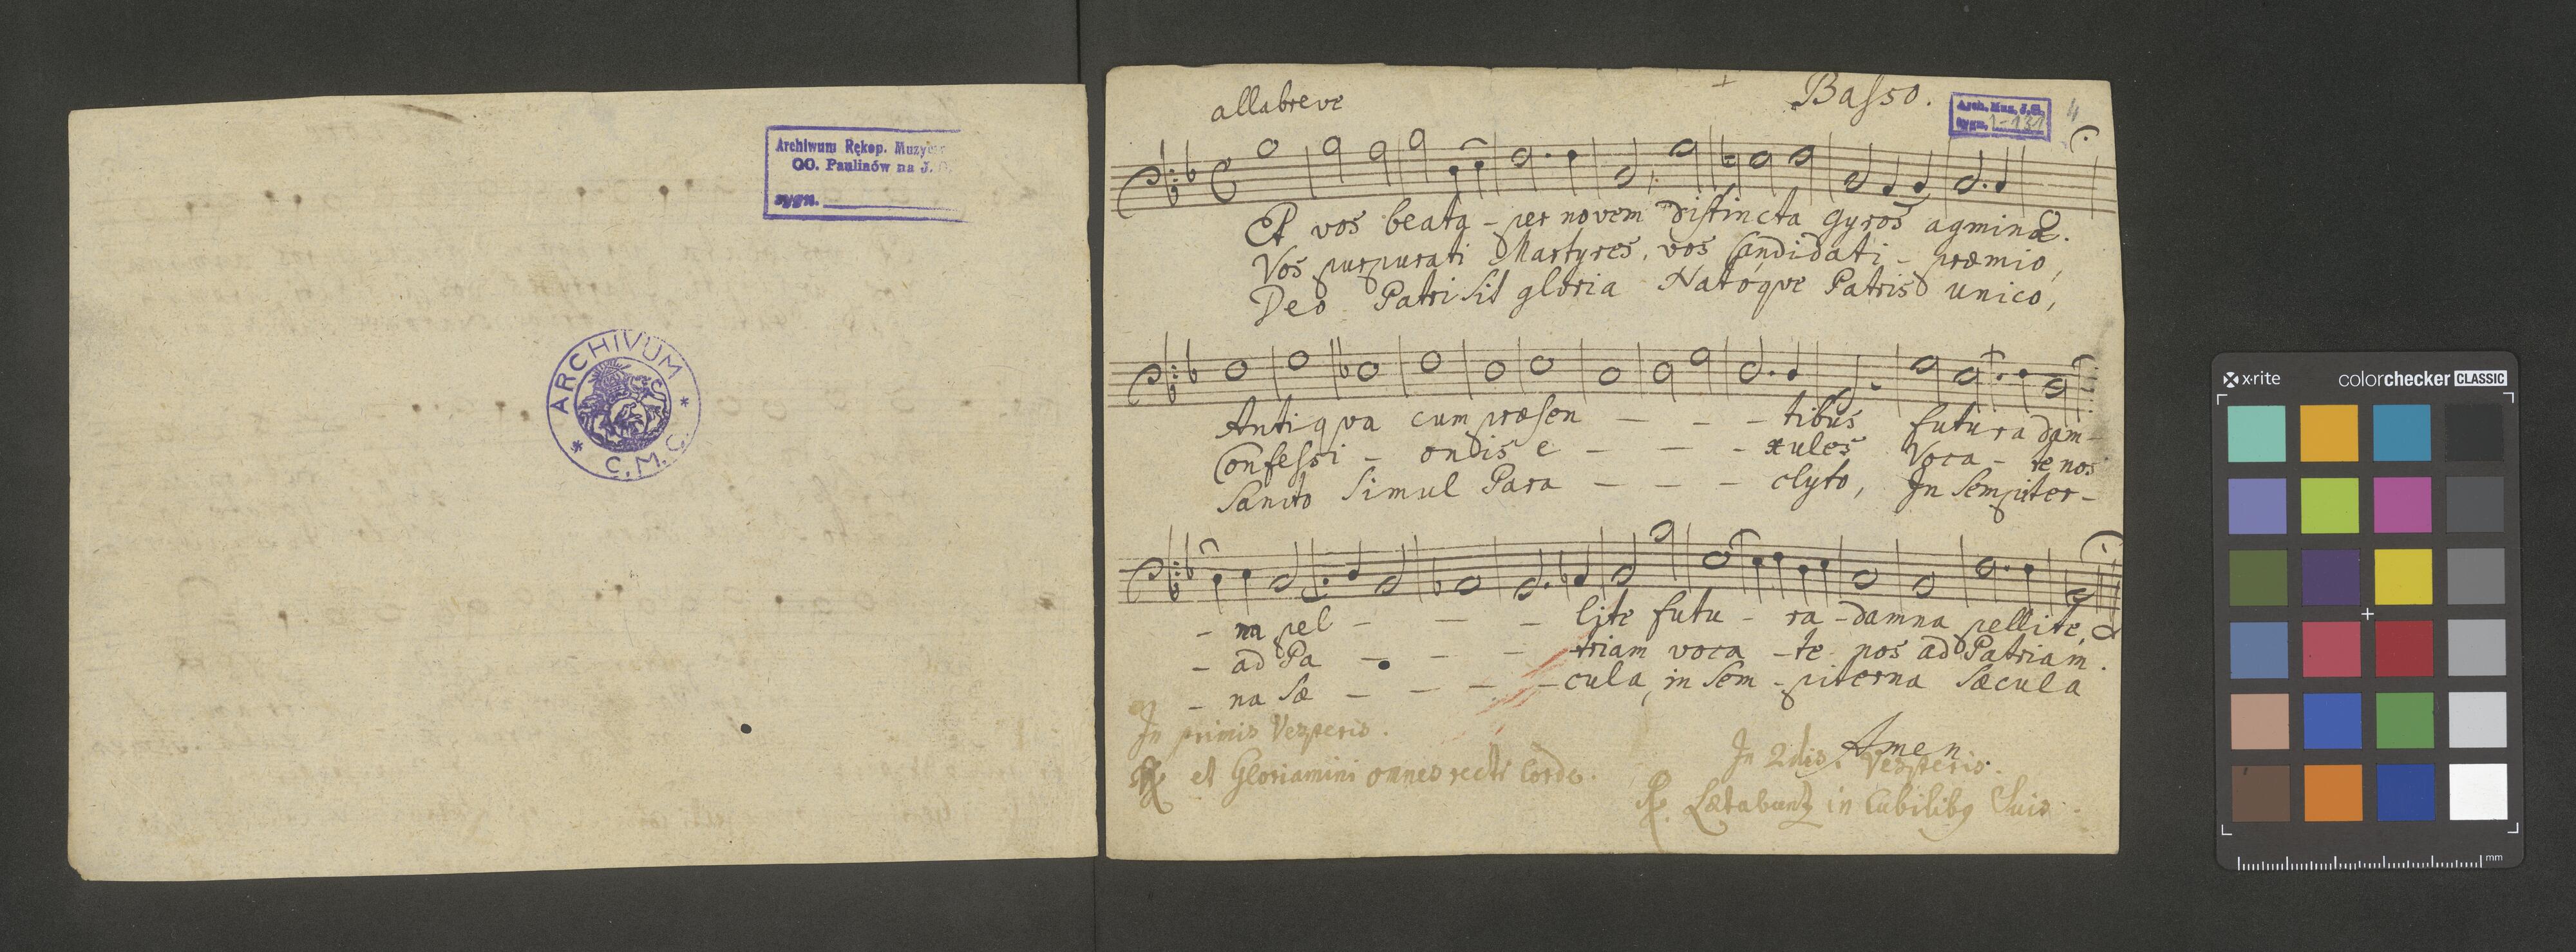 Archiwum Rękop. Muzycz
OO. Paulinów na J. G.
sygn.
ARCHIVUM
* C.M.C. *
allabreve
Basso.
Arch. Muz. J.G.
sygn. I-131
4
Et vos beata - per novem distincta gyros agmina.
Vos purpurati Martyres, vos Candidati - præmio,
Deo Patri sit gloria Natoque Patris unico,
Antiqva cum præsen - - - tibus futura dam-
Confessi - onis e - - - xules Voca - te nos
Sancto simul Para - - - clyto, In sempiter-
- na pel - - - lite futu - ra - damna pellite,
- ad Pa - - - triam voca - te nos ad Patriam.
- na sæ - - - - cula, in sem - piterna sæcula
Amen.
In primis Vesperis.
℟ et Gloriamini omnes recti Corde.
In 2dis Vesperis.
℟. Lætabunt in Cubilibq Suis.
x·rite
colorchecker CLASSIC
mm